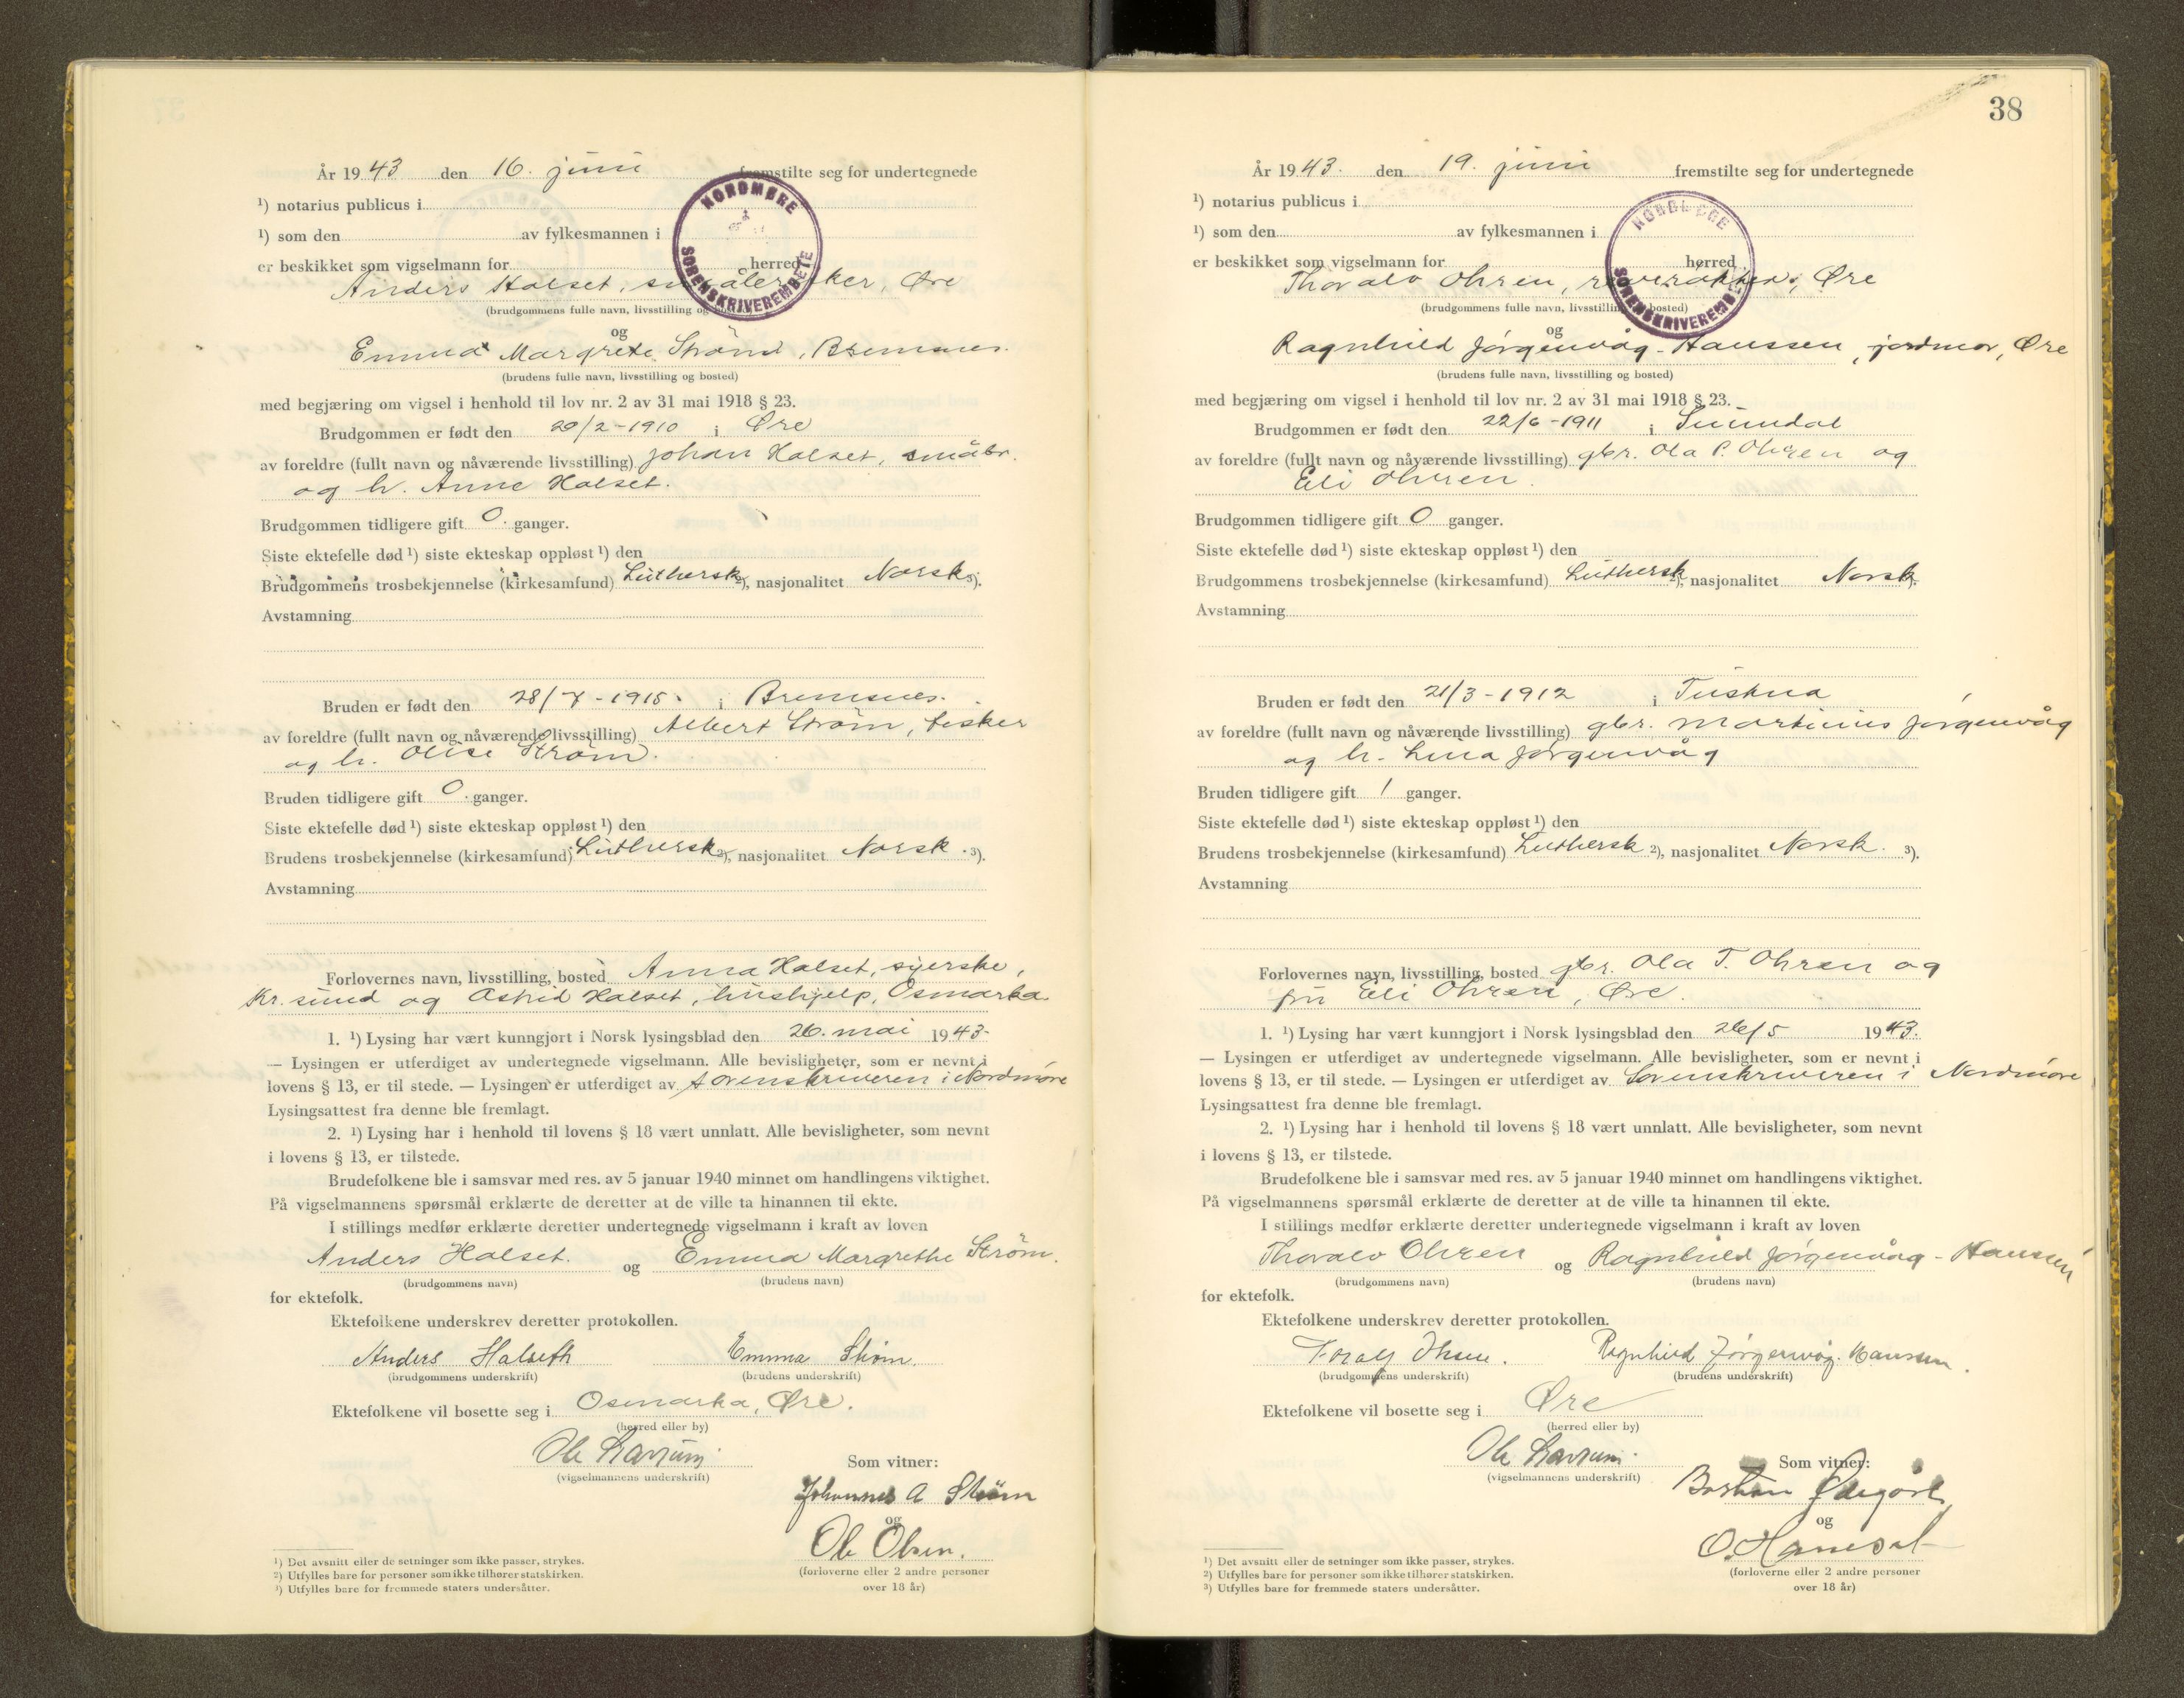 År 1943 den 16. juni fremstilte seg for undertegnede
¹) notarius publicus i
¹) som den av fylkesmannen i
er beskikket som vigselmann for herred
NORDMØRE SORENSKRIVEREMBETE
Anders Halset, Øre
(brudgommens fulle navn, livsstilling og
og
Emma Margrete Strøm, Bremsnes.
(brudens fulle navn, livsstilling og bosted)
med begjæring om vigsel i henhold til lov nr. 2 av 31 mai 1918 § 23.
Brudgommen er født den 20/2-1910 i Øre
av foreldre (fullt navn og nåværende livsstilling) Johan Halset, småbr.
og h. Anne Halset.
Brudgommen tidligere gift 0. ganger.
Siste ektefelle død ¹) siste ekteskap oppløst ¹) den
Brudgommens trosbekjennelse (kirkesamfund) Luthersk ²), nasjonalitet Norsk ³).
Avstamning
Bruden er født den 28/7-1915. i Bremsnes.
av foreldre (fullt navn og nåværende livsstilling) Albert Strøm, fisker
og h. Olise Strøm.
Bruden tidligere gift 0. ganger.
Siste ektefelle død ¹) siste ekteskap oppløst ¹) den
Brudens trosbekjennelse (kirkesamfund) Luthersk ²), nasjonalitet Norsk. ³).
Avstamning
Forlovernes navn, livsstilling, bosted Anna Halset, syerske,
Kr.sund og Astrid Halset, hushjelp, Osmarka.
1. ¹) Lysing har vært kunngjort i Norsk lysingsblad den 26. mai 1943-
— Lysingen er utferdiget av undertegnede vigselmann. Alle bevisligheter, som er nevnt i
lovens § 13, er til stede. — Lysingen er utferdiget av Sorenskriveren i Nordmøre
Lysingsattest fra denne ble fremlagt.
2. ¹) Lysing har i henhold til lovens § 18 vært unnlatt. Alle bevisligheter, som nevnt
i lovens § 13, er tilstede.
Brudefolkene ble i samsvar med res. av 5 januar 1940 minnet om handlingens viktighet.
På vigselmannens spørsmål erklærte de deretter at de ville ta hinannen til ekte.
I stillings medfør erklærte deretter undertegnede vigselmann i kraft av loven
Anders Halset. og Emma Margrethe Strøm.
(brudgommens navn) (brudens navn)
for ektefolk.
Ektefolkene underskrev deretter protokollen.
Anders Halseth Emma Strøm.
(brudgommens underskrift) (brudens underskrift)
Ektefolkene vil bosette seg i Osmarka, Øre.
(herred eller by)
Ole
(vigselmannens underskrift)
Som vitner:
Johannes A Strøm
og
Ole Olsen.
(forloverne eller 2 andre personer
over 18 år)
¹) Det avsnitt eller de setninger som ikke passer, strykes.
²) Utfylles bare for personer som ikke tilhører statskirken.
³) Utfylles bare for fremmede staters undersåtter.
38
År 1943. den 19. juni fremstilte seg for undertegnede
¹) notarius publicus i
¹) som den av fylkesmannen i
er beskikket som vigselmann for herred
NORDMØRE SORENSKRIVEREMBETE
Thoralv Ohren, Øre
(brudgommens fulle navn, livsstilling bosted)
og
Ragnhild Jørgenvåg-Hanssen, jordmor, Øre
(brudens fulle navn, livsstilling og bosted)
med begjæring om vigsel i henhold til lov nr. 2 av 31 mai 1918 § 23.
Brudgommen er født den 22/6-1911 i Sunndal
av foreldre (fullt navn og nåværende livsstilling) gbr. Ola P. Ohren og
Eli Ohren.
Brudgommen tidligere gift 0 ganger.
Siste ektefelle død ¹) siste ekteskap oppløst ¹) den
Brudgommens trosbekjennelse (kirkesamfund) Luthersk ²), nasjonalitet Norsk ³).
Avstamning
Bruden er født den 21/3-1912 i Tustna
av foreldre (fullt navn og nåværende livsstilling) gbr. Martinius Jørgenvåg
og h. Lina Jørgenvåg
Bruden tidligere gift 1 ganger.
Siste ektefelle død ¹) siste ekteskap oppløst ¹) den
Brudens trosbekjennelse (kirkesamfund) Luthersk ²), nasjonalitet Norsk. ³).
Avstamning
Forlovernes navn, livsstilling, bosted gbr. Ola T. Ohren og
fru Eli Ohren, Øre.
1. ¹) Lysing har vært kunngjort i Norsk lysingsblad den 26/5 1943.
— Lysingen er utferdiget av undertegnede vigselmann. Alle bevisligheter, som er nevnt i
lovens § 13, er til stede. — Lysingen er utferdiget av Sorenskriveren i Nordmøre
Lysingsattest fra denne ble fremlagt.
2. ¹) Lysing har i henhold til lovens § 18 vært unnlatt. Alle bevisligheter, som nevnt
i lovens § 13, er tilstede.
Brudefolkene ble i samsvar med res. av 5 januar 1940 minnet om handlingens viktighet.
På vigselmannens spørsmål erklærte de deretter at de ville ta hinannen til ekte.
I stillings medfør erklærte deretter undertegnede vigselmann i kraft av loven
Thoralv Ohren og Ragnhild Jørgenvåg-Hanssen
(brudgommens navn) (brudens navn)
for ektefolk.
Ektefolkene underskrev deretter protokollen.
Toralf Ohren. Ragnhild Jørgenvåg-Hanssen.
(brudgommens underskrift) (brudens underskrift)
Ektefolkene vil bosette seg i Øre
(herred eller by)
Ole
(vigselmannens underskrift)
Som vitner:
Bastian Ødegård
og
O.
(forloverne eller 2 andre personer
over 18 år)
¹) Det avsnitt eller de setninger som ikke passer, strykes.
²) Utfylles bare for personer som ikke tilhører statskirken.
³) Utfylles bare for fremmede staters undersåtter.